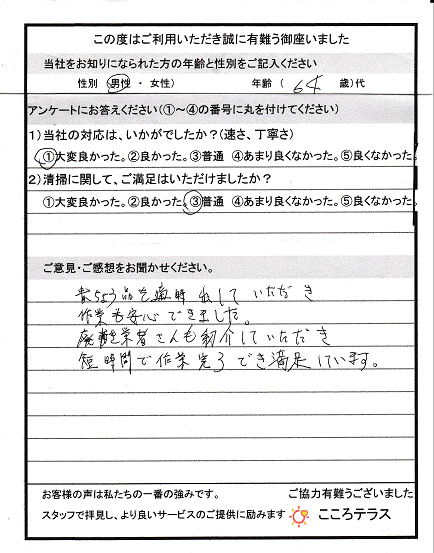 この度はご利用いただき誠に有難う御座いました
当社をお知りになられた方の年齢と性別をご記入ください
性別（男性・女性） 年齢（64歳）代
アンケートにお答えください（①～④の番号に丸を付けてください）
1）当社の対応は、いかがでしたか？（速さ、丁寧さ）
①大変良かった。②良かった。③普通 ④あまり良くなかった。⑤良くなかった。
2）清掃に関して、ご満足はいただけましたか？
①大変良かった。②良かった。③普通 ④あまり良くなかった。⑤良くなかった。
ご意見・ご感想をお聞かせください。
品を適時 していただき
作業も安心できました。
業者さんも紹介していただき
短時間で作業完了でき満足しています。
お客様の声は私たちの一番の強みです。 ご協力有難うございました
スタッフで拝見し、より良いサービスのご提供に励みます こころテラス